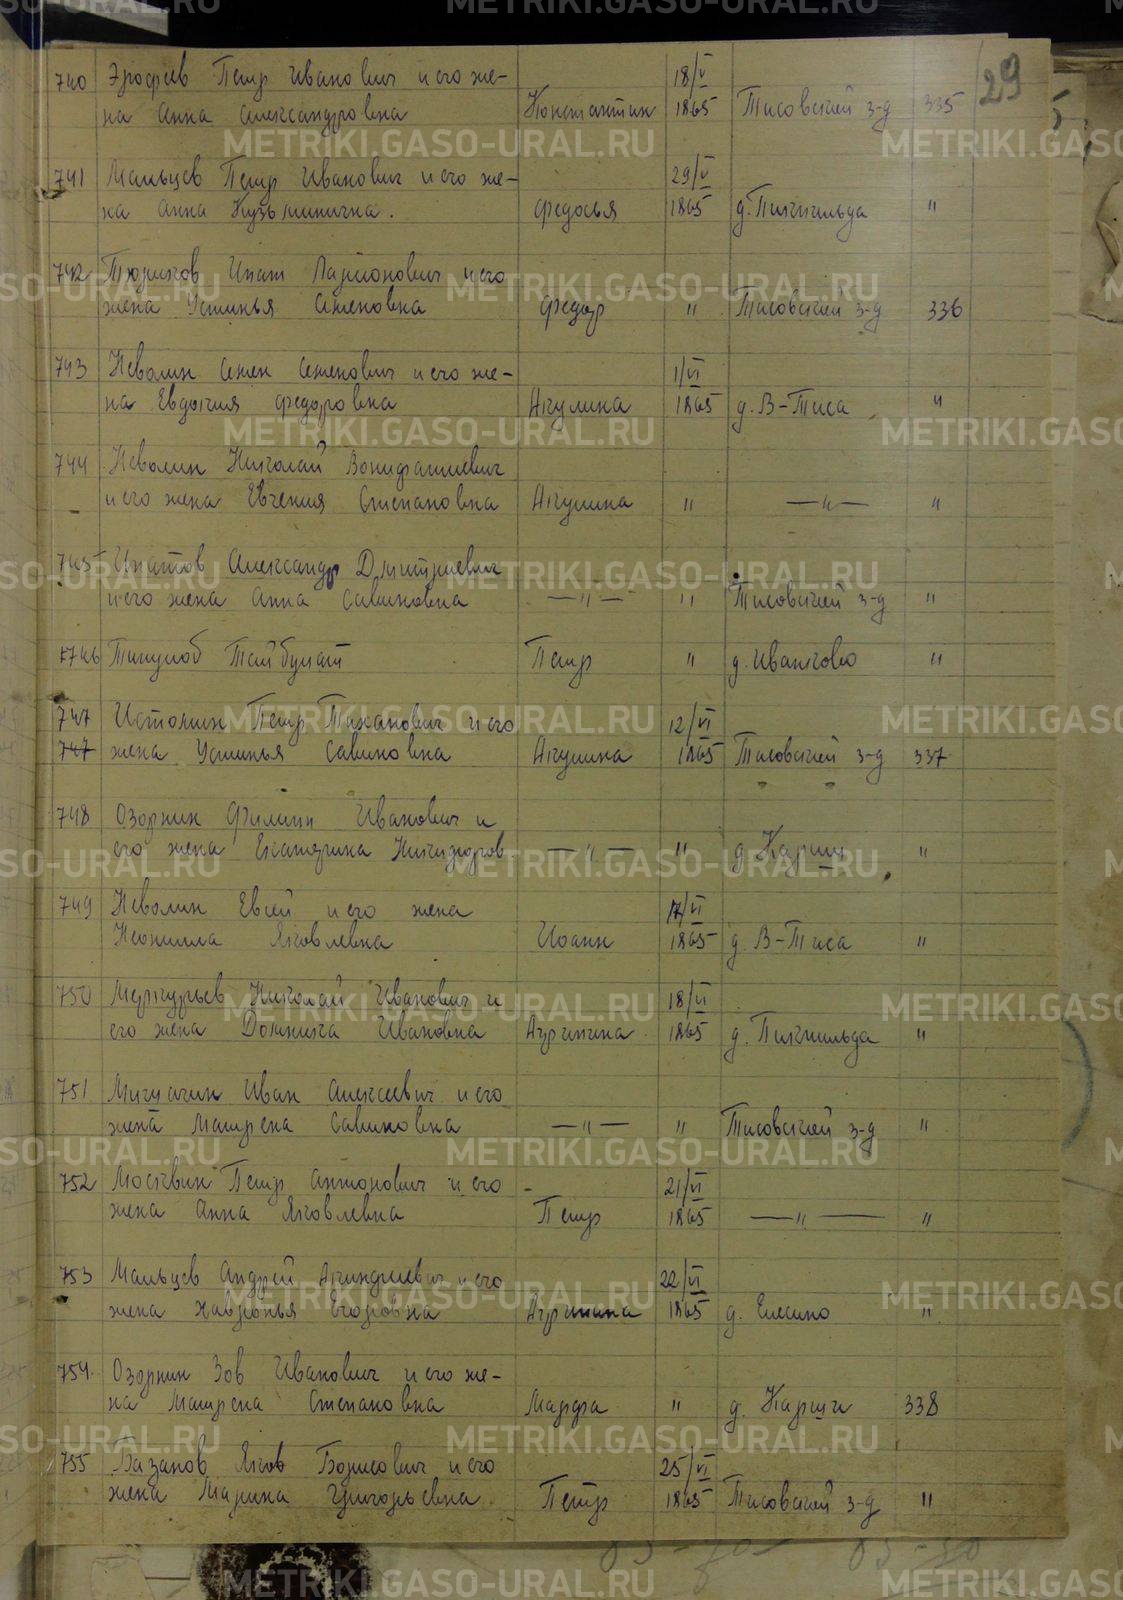 29
740 Ерофеев Петр Иванович и его же- 18/V
на Анна Александровна Константин 1865 Тисовский з-д 335
741 Мальцев Петр Иванович и его же- 29/V
на Анна Кузьминична. Федосья 1865 д. "
742 Ипат Ларионович и его
жена Устинья Семеновна Федор " Тисовский з-д 336
743 Неволин Семен Семенович и его же- 1/VI
на Евдокия Федоровна Акулина 1865 д. В-Тиса "
744 Неволин Николай Вонифатиевич
и его жена Евгения Степановна Акулина " —"— "
745 Ипатов Александр Дмитриевич
и его жена Анна Савиновна —"— " Тисовский з-д "
746 Тайбулат Петр " д. Иванково "
747 Истомин Петр и его 12/VI
747 жена Устинья Савиновна Акулина 1865 Тисовский з-д 337
748 Озорнин Филипп Иванович и
его жена Екатерина Никифоров. —"— " д. "
749 Неволин Евсей и его жена 17/VI
Неонилла Яковлевна Иоанн 1865 д. В-Тиса "
750 Меркурьев Николай Иванович и 18/VI
его жена Домника Ивановна Агрипина 1865 д. "
751 Иван Алексеевич и его
жена Матрена Савиновна —"— " Тисовский з-д "
752 Москвин Петр Антонович и его - 21/VI
жена Анна Яковлевна Петр 1865 —"— "
753 Мальцев Андрей Акиндиевич и его 22/VI
жена Хавронья Егоровна Агрипина 1865 д. "
754. Озорнин Зов Иванович и его же-
на Матрена Степановна Марфа " д. Карши 338
755 Базанов Яков Борисович и его 25/VI
жена Марина Григорьевна Петр 1865 Тисовский з-д "
METRIKI.GASO-URAL.RU